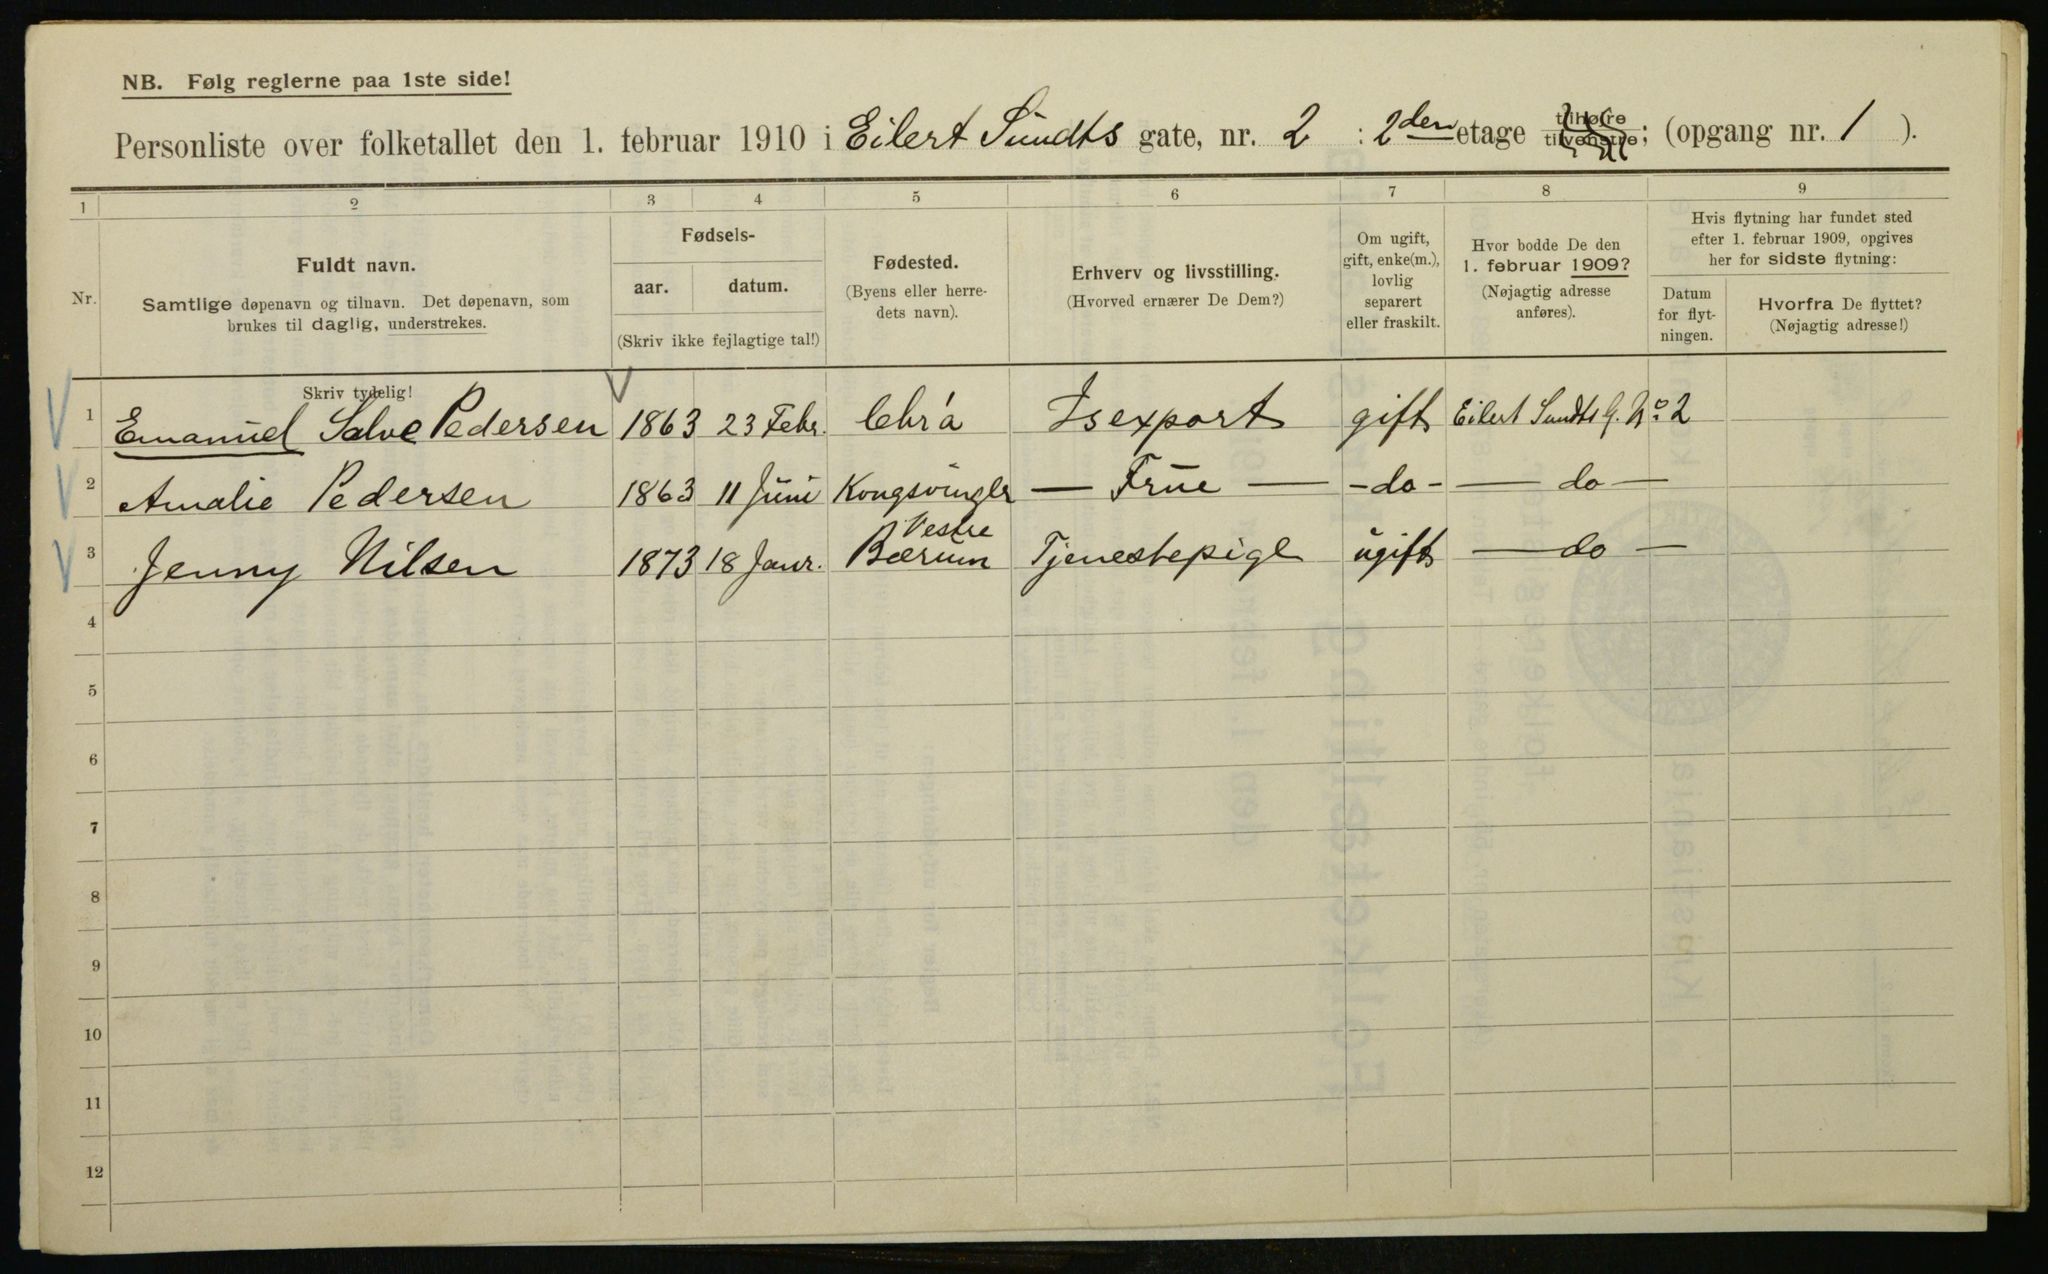 NB. Følg reglerne paa 1ste side!
Personliste over folketallet den 1. februar 1910 i Eilert Sundts gate, nr. 2 : 2den etage tilhøire tilvenstre; (opgang nr. 1 ).
1 2 3 4 5 6 7 8 9
Nr.
Fuldt navn.
Samtlige døpenavn og tilnavn. Det døpenavn, som
brukes til daglig, understrekes.
Fødsels-
aar. datum.
(Skriv ikke fejlagtige tal!)
Fødested.
(Byens eller herre-
dets navn).
Erhverv og livsstilling.
(Hvorved ernærer De Dem?)
Om ugift,
gift, enke(m.),
lovlig
separert
eller fraskilt.
Hvor bodde De den
1. februar 1909?
(Nøjagtig adresse
anføres).
Hvis flytning har fundet sted
efter 1. februar 1909, opgives
her for sidste flytning:
Datum
for flyt-
ningen.
Hvorfra De flyttet?
(Nøjagtig adresse!)
Skriv tydelig!
1 Emanuel Salve Pedersen 1863 23 Febr. Chr.a Isexport gift Eilert Sundts G. No 2
2 Amalie Pedersen 1863 11 Juni Kongsvinger — Frue — -do- — do —
3 Jenny Nilsen 1873 18 Janr. Vestre Bærum Tjenestepige ugift — do —
4
5
6
7
8
9
10
11
12